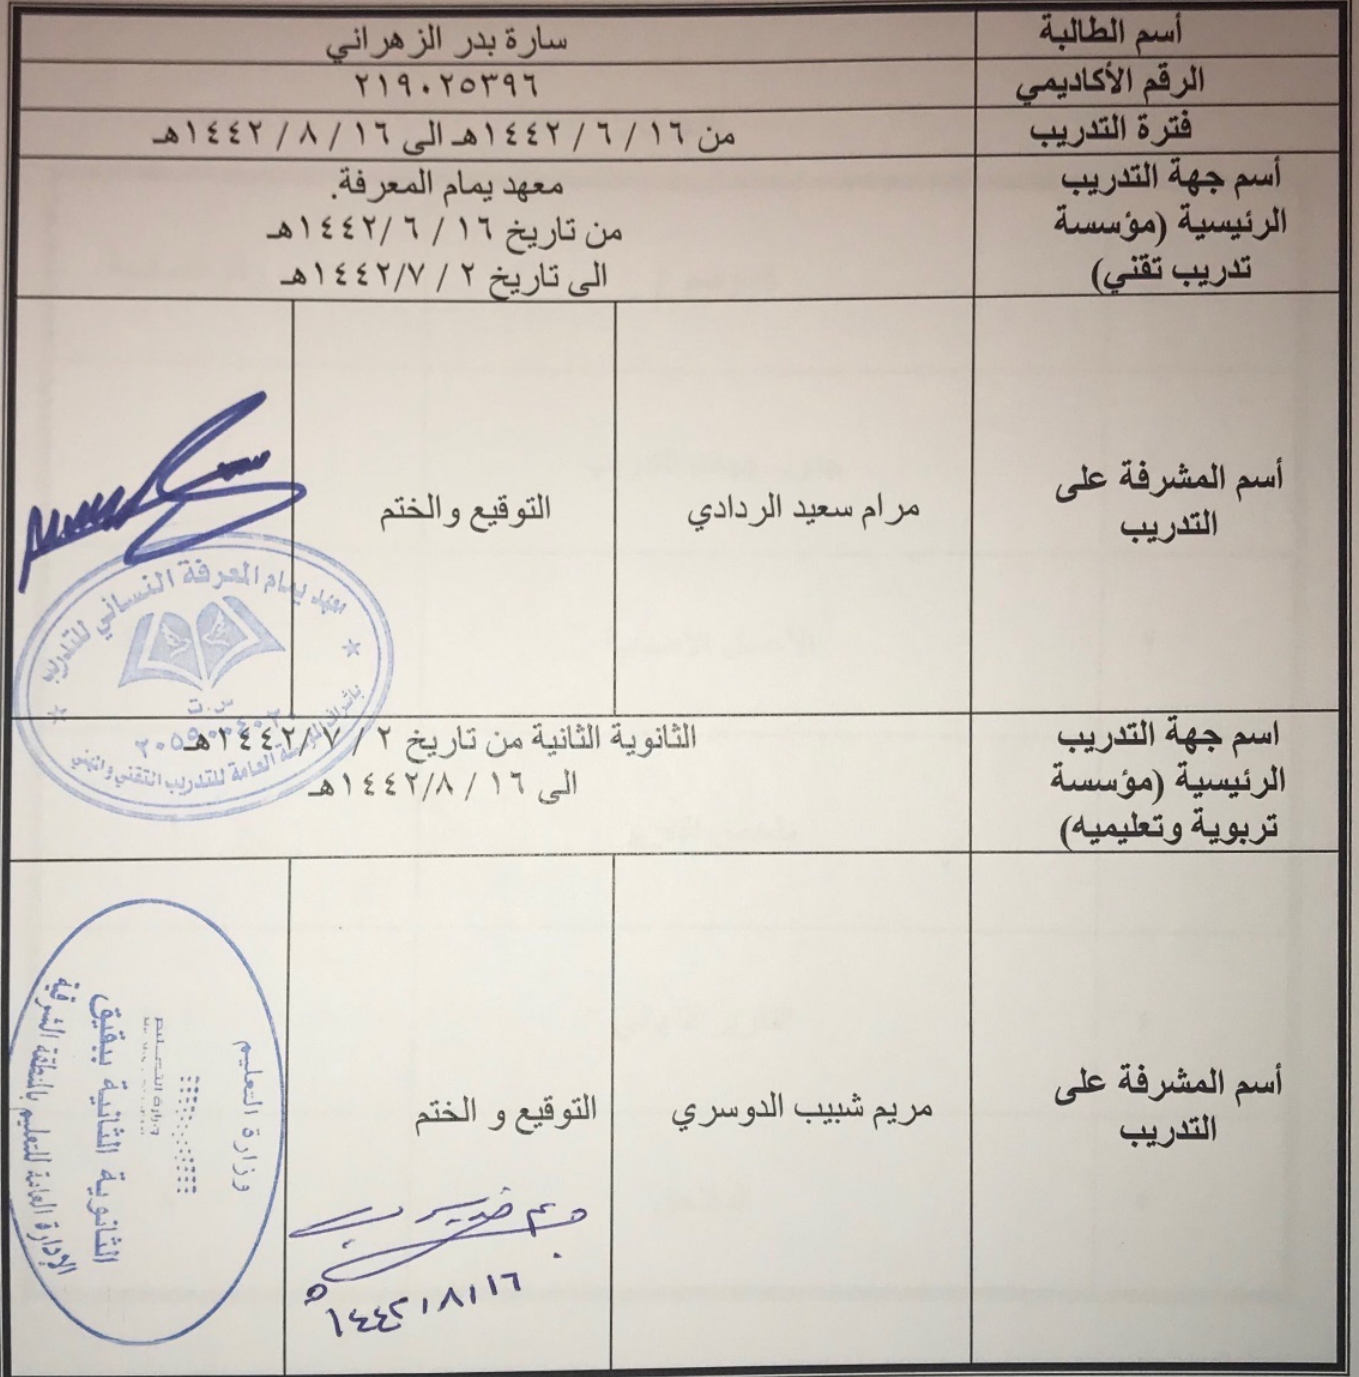 أسم الطالبة
سارة بدر الزهراني
الرقم الأكاديمي
٢١٩٠٢٥٣٩٦
فترة التدريب
من ١٦ / ٦ / ١٤٤٢هـ الى ١٦ / ٨ / ١٤٤٢هـ
أسم جهة التدريب
الرئيسية (مؤسسة
تدريب تقني)
معهد يمام المعرفة.
من تاريخ ١٦ / ٦ /١٤٤٢هـ
الى تاريخ ٢ / ١٤٤٢/٧هـ
أسم المشرفة على
التدريب
مرام سعيد الردادي
التوقيع والختم
معهد يمام المعرفة النسائي للتدريب
باشراف المؤسسة العامة للتدريب التقني والمهني
اسم جهة التدريب
الرئيسية (مؤسسة
تربوية وتعليميه)
الثانوية الثانية من تاريخ ٢ / ١٤٤٢/٧هـ
الى ١٦ / ١٤٤٢/٨هـ
أسم المشرفة على
التدريب
مريم شبيب الدوسري
التوقيع و الختم
١٤٤٢/٨/١٦هـ
وزارة التعليم
وزارة التعليم
الثانوية الثانية ببقيق
الإدارة العامة للتعليم بالمنطقة الشرقية